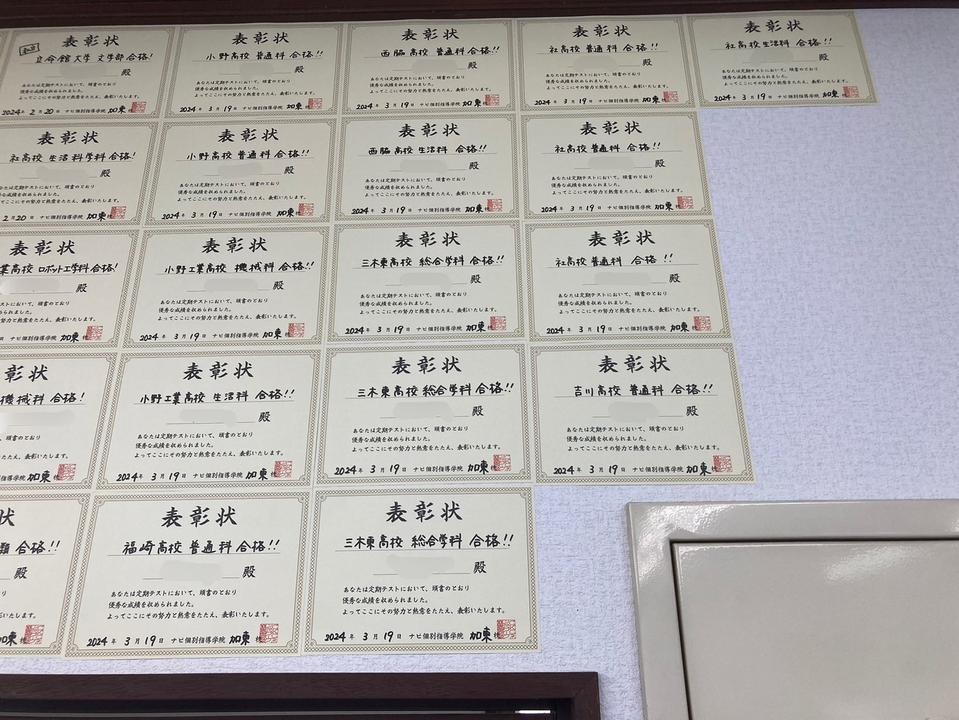 表彰状
立命館大学 文学部 合格!
殿
あなたは定期テストにおいて、頭書のとおり
優秀な成績を収められました。
よってここにその努力と熱意をたたえ、表彰いたします。
2024年 2月 20日 ナビ個別指導学院 加東校
表彰状
小野高校 普通科 合格!!
殿
あなたは定期テストにおいて、頭書のとおり
優秀な成績を収められました。
よってここにその努力と熱意をたたえ、表彰いたします。
2024年 3月 19日 ナビ個別指導学院 加東校
表彰状
西脇高校 普通科 合格!!
殿
あなたは定期テストにおいて、頭書のとおり
優秀な成績を収められました。
よってここにその努力と熱意をたたえ、表彰いたします。
2024年 3月 19日 ナビ個別指導学院 加東校
表彰状
社高校 普通科 合格!!
殿
あなたは定期テストにおいて、頭書のとおり
優秀な成績を収められました。
よってここにその努力と熱意をたたえ、表彰いたします。
2024年 3月 19日 ナビ個別指導学院 加東校
表彰状
社高校 生活科 合格!!
殿
あなたは定期テストにおいて、頭書のとおり
優秀な成績を収められました。
よってここにその努力と熱意をたたえ、表彰いたします。
2024年 3月 19日 ナビ個別指導学院 加東校
表彰状
社高校 生活科学科 合格!
殿
あなたは定期テストにおいて、頭書のとおり
優秀な成績を収められました。
よってここにその努力と熱意をたたえ、表彰いたします。
2月 20日 ナビ個別指導学院 加東校
表彰状
小野高校 普通科 合格!!
殿
あなたは定期テストにおいて、頭書のとおり
優秀な成績を収められました。
よってここにその努力と熱意をたたえ、表彰いたします。
2024年 3月 19日 ナビ個別指導学院 加東校
表彰状
西脇高校 生活科 合格!!
殿
あなたは定期テストにおいて、頭書のとおり
優秀な成績を収められました。
よってここにその努力と熱意をたたえ、表彰いたします。
2024年 3月 19日 ナビ個別指導学院 加東校
表彰状
社高校 普通科 合格!!
殿
あなたは定期テストにおいて、頭書のとおり
優秀な成績を収められました。
よってここにその努力と熱意をたたえ、表彰いたします。
2024年 3月 19日 ナビ個別指導学院 加東校
表彰状
業高校 ロボット工学科 合格!
殿
テストにおいて、頭書のとおり
を収められました。
その努力と熱意をたたえ、表彰いたします。
日 ナビ個別指導学院 加東校
表彰状
小野工業高校 機械科 合格!!
殿
あなたは定期テストにおいて、頭書のとおり
優秀な成績を収められました。
よってここにその努力と熱意をたたえ、表彰いたします。
2024年 3月 19日 ナビ個別指導学院 加東校
表彰状
三木東高校 総合学科 合格!!
殿
あなたは定期テストにおいて、頭書のとおり
優秀な成績を収められました。
よってここにその努力と熱意をたたえ、表彰いたします。
2024年 3月 19日 ナビ個別指導学院 加東校
表彰状
社高校 普通科 合格 !!
殿
あなたは定期テストにおいて、頭書のとおり
優秀な成績を収められました。
よってここにその努力と熱意をたたえ、表彰いたします。
2024年 3月 19日 ナビ個別指導学院 加東校
彰状
機械科 合格!
殿
において、頭書のとおり
られました。
力と熱意をたたえ、表彰いたします。
ナビ個別指導学院 加東校
表彰状
小野工業高校 生活科 合格!!
殿
あなたは定期テストにおいて、頭書のとおり
優秀な成績を収められました。
よってここにその努力と熱意をたたえ、表彰いたします。
2024年 3月 19日 ナビ個別指導学院 加東校
表彰状
三木東高校 総合学科 合格!!
殿
あなたは定期テストにおいて、頭書のとおり
優秀な成績を収められました。
よってここにその努力と熱意をたたえ、表彰いたします。
2024年 3月 19日 ナビ個別指導学院 加東校
表彰状
吉川高校 普通科 合格!!
殿
あなたは定期テストにおいて、頭書のとおり
優秀な成績を収められました。
よってここにその努力と熱意をたたえ、表彰いたします。
2024年 3月 19日 ナビ個別指導学院 加東校
状
合格!!
殿
頭書のとおり
たたえ、表彰いたします。
指導学院 加東校
表彰状
福崎高校 普通科 合格!!
殿
あなたは定期テストにおいて、頭書のとおり
優秀な成績を収められました。
よってここにその努力と熱意をたたえ、表彰いたします。
2024年 3月 19日 ナビ個別指導学院 加東校
表彰状
三木東高校 総合学科 合格!!
殿
あなたは定期テストにおいて、頭書のとおり
優秀な成績を収められました。
よってここにその努力と熱意をたたえ、表彰いたします。
2024年 3月 19日 ナビ個別指導学院 加東校